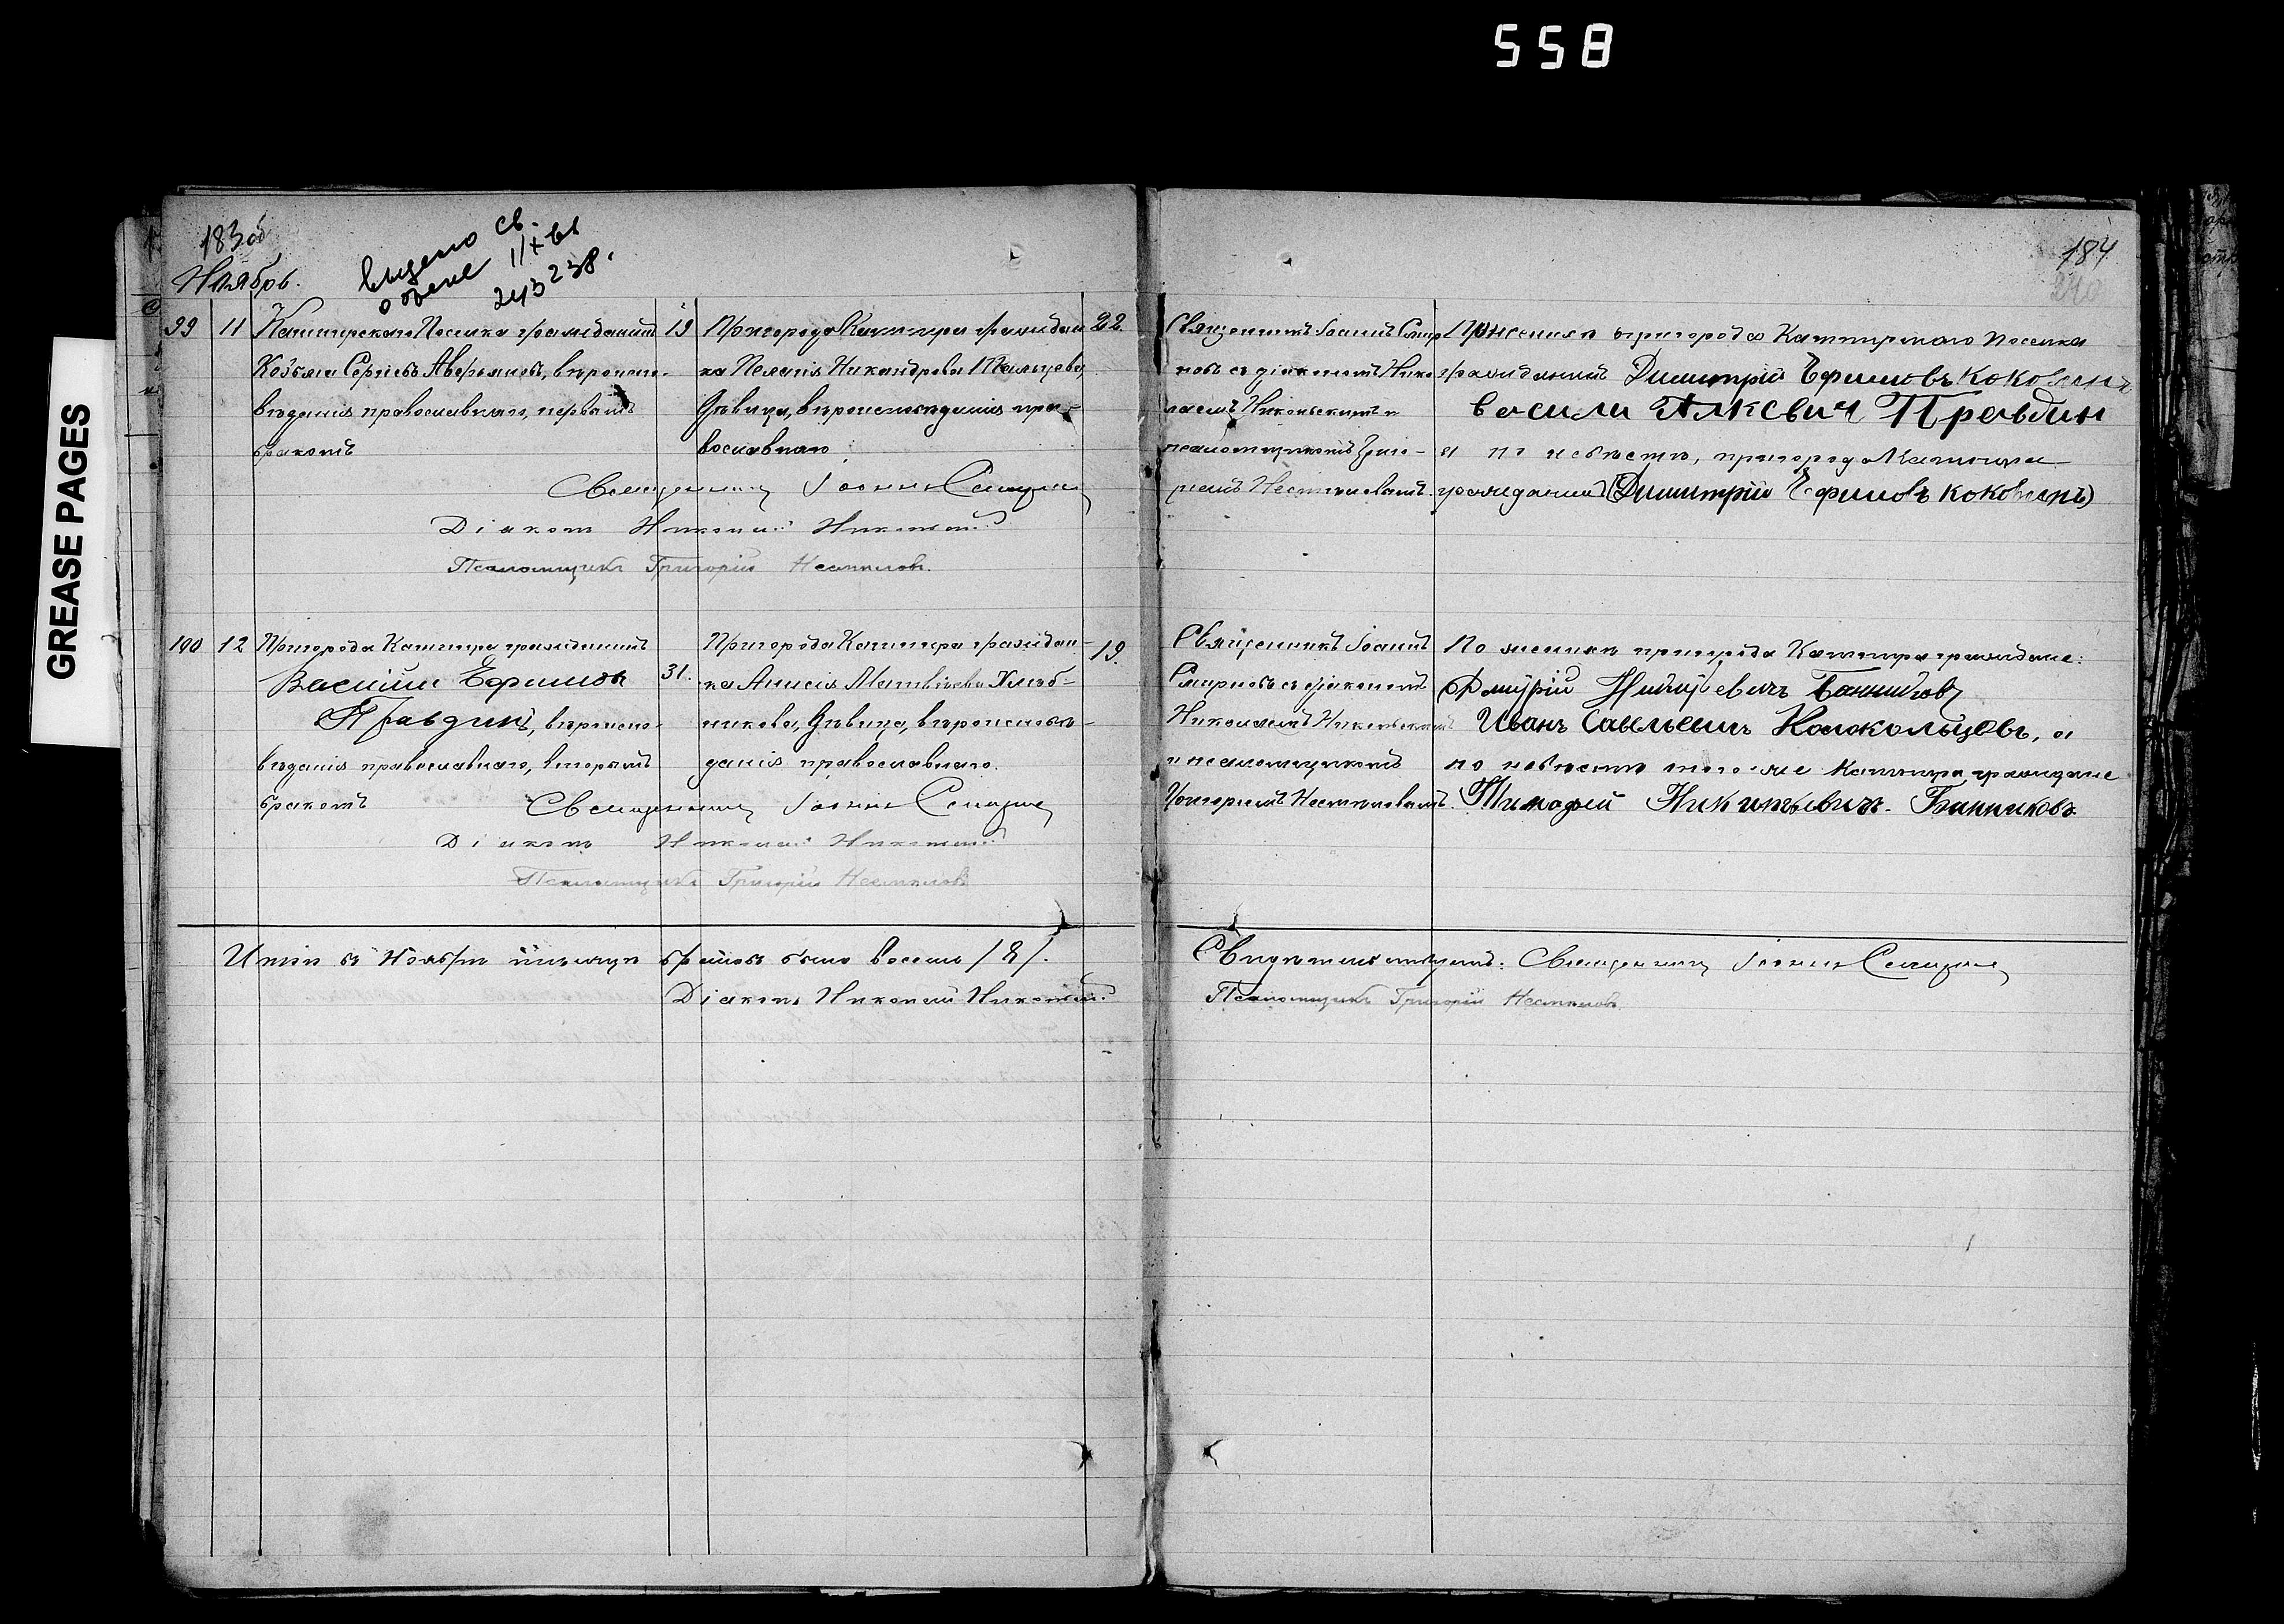 558
GREASE PAGES
183 об
Ноябрь.
выдано св.
о браке 11/X 61
243238.
184
99 11 Каштирскаго Поселка гражданинъ
Козьма Сергѣевъ Аверьяновъ, вѣроиспо-
вѣданія православнаго, первымъ
бракомъ
19 Пригорода Каштира граждан-
ка Пелагія Никандрова Мальцева,
дѣвица, вѣроисповѣданія пра-
вославнаго
22.
Священникъ Іоаннъ Смир-
новъ съ діакономъ Нико-
лаемъ Никольскимъ и
псаломщикомъ Григо-
ріемъ
По женихѣ пригорода Каштирскаго Поселка
гражданинъ Димитрій Ефимовъ Коковкинъ
Васили Алксвич Правдин
а по невѣстѣ, пригорода Каштира
гражданинъ (Димитрій Ефимовъ Коковкинъ)
Священникъ Іоаннъ Смирновъ
Діаконъ Николай Никольскій
Псаломщикъ Григорій
100 12 Пригорода Каштира гражданинъ
Василій Ефимовъ
Правдинъ, вѣроиспо-
вѣданія православнаго, вторымъ
бракомъ
31.
Пригорода Каштира граждан-
ка Анисія Матвѣева Хлѣб-
никова, дѣвица, вѣроисповѣ-
данія православнаго.
19.
Священникъ Іоаннъ
Смирновъ съ діакономъ
Николаемъ Никольскимъ
и псаломщикомъ
Григоріемъ
По женихѣ пригорода Каштира граждане:
Дмитрій Никитьевичъ Банниковъ
Иванъ Савельевичъ Колокольцовъ, а
по невѣстѣ того-же Каштира граждане
Тимофей Никитьевичъ Банниковъ.
Священникъ Іоаннъ Смирновъ
Діаконъ Николай Никольскій
Псаломщикъ Григорій
Итого въ Ноябрѣ мѣсяцѣ браковъ было восемь /8/.
Діаконъ Николай Никольскій
Свидѣтельствуютъ: Священникъ Іоаннъ Смирновъ
Псаломщикъ Григорій